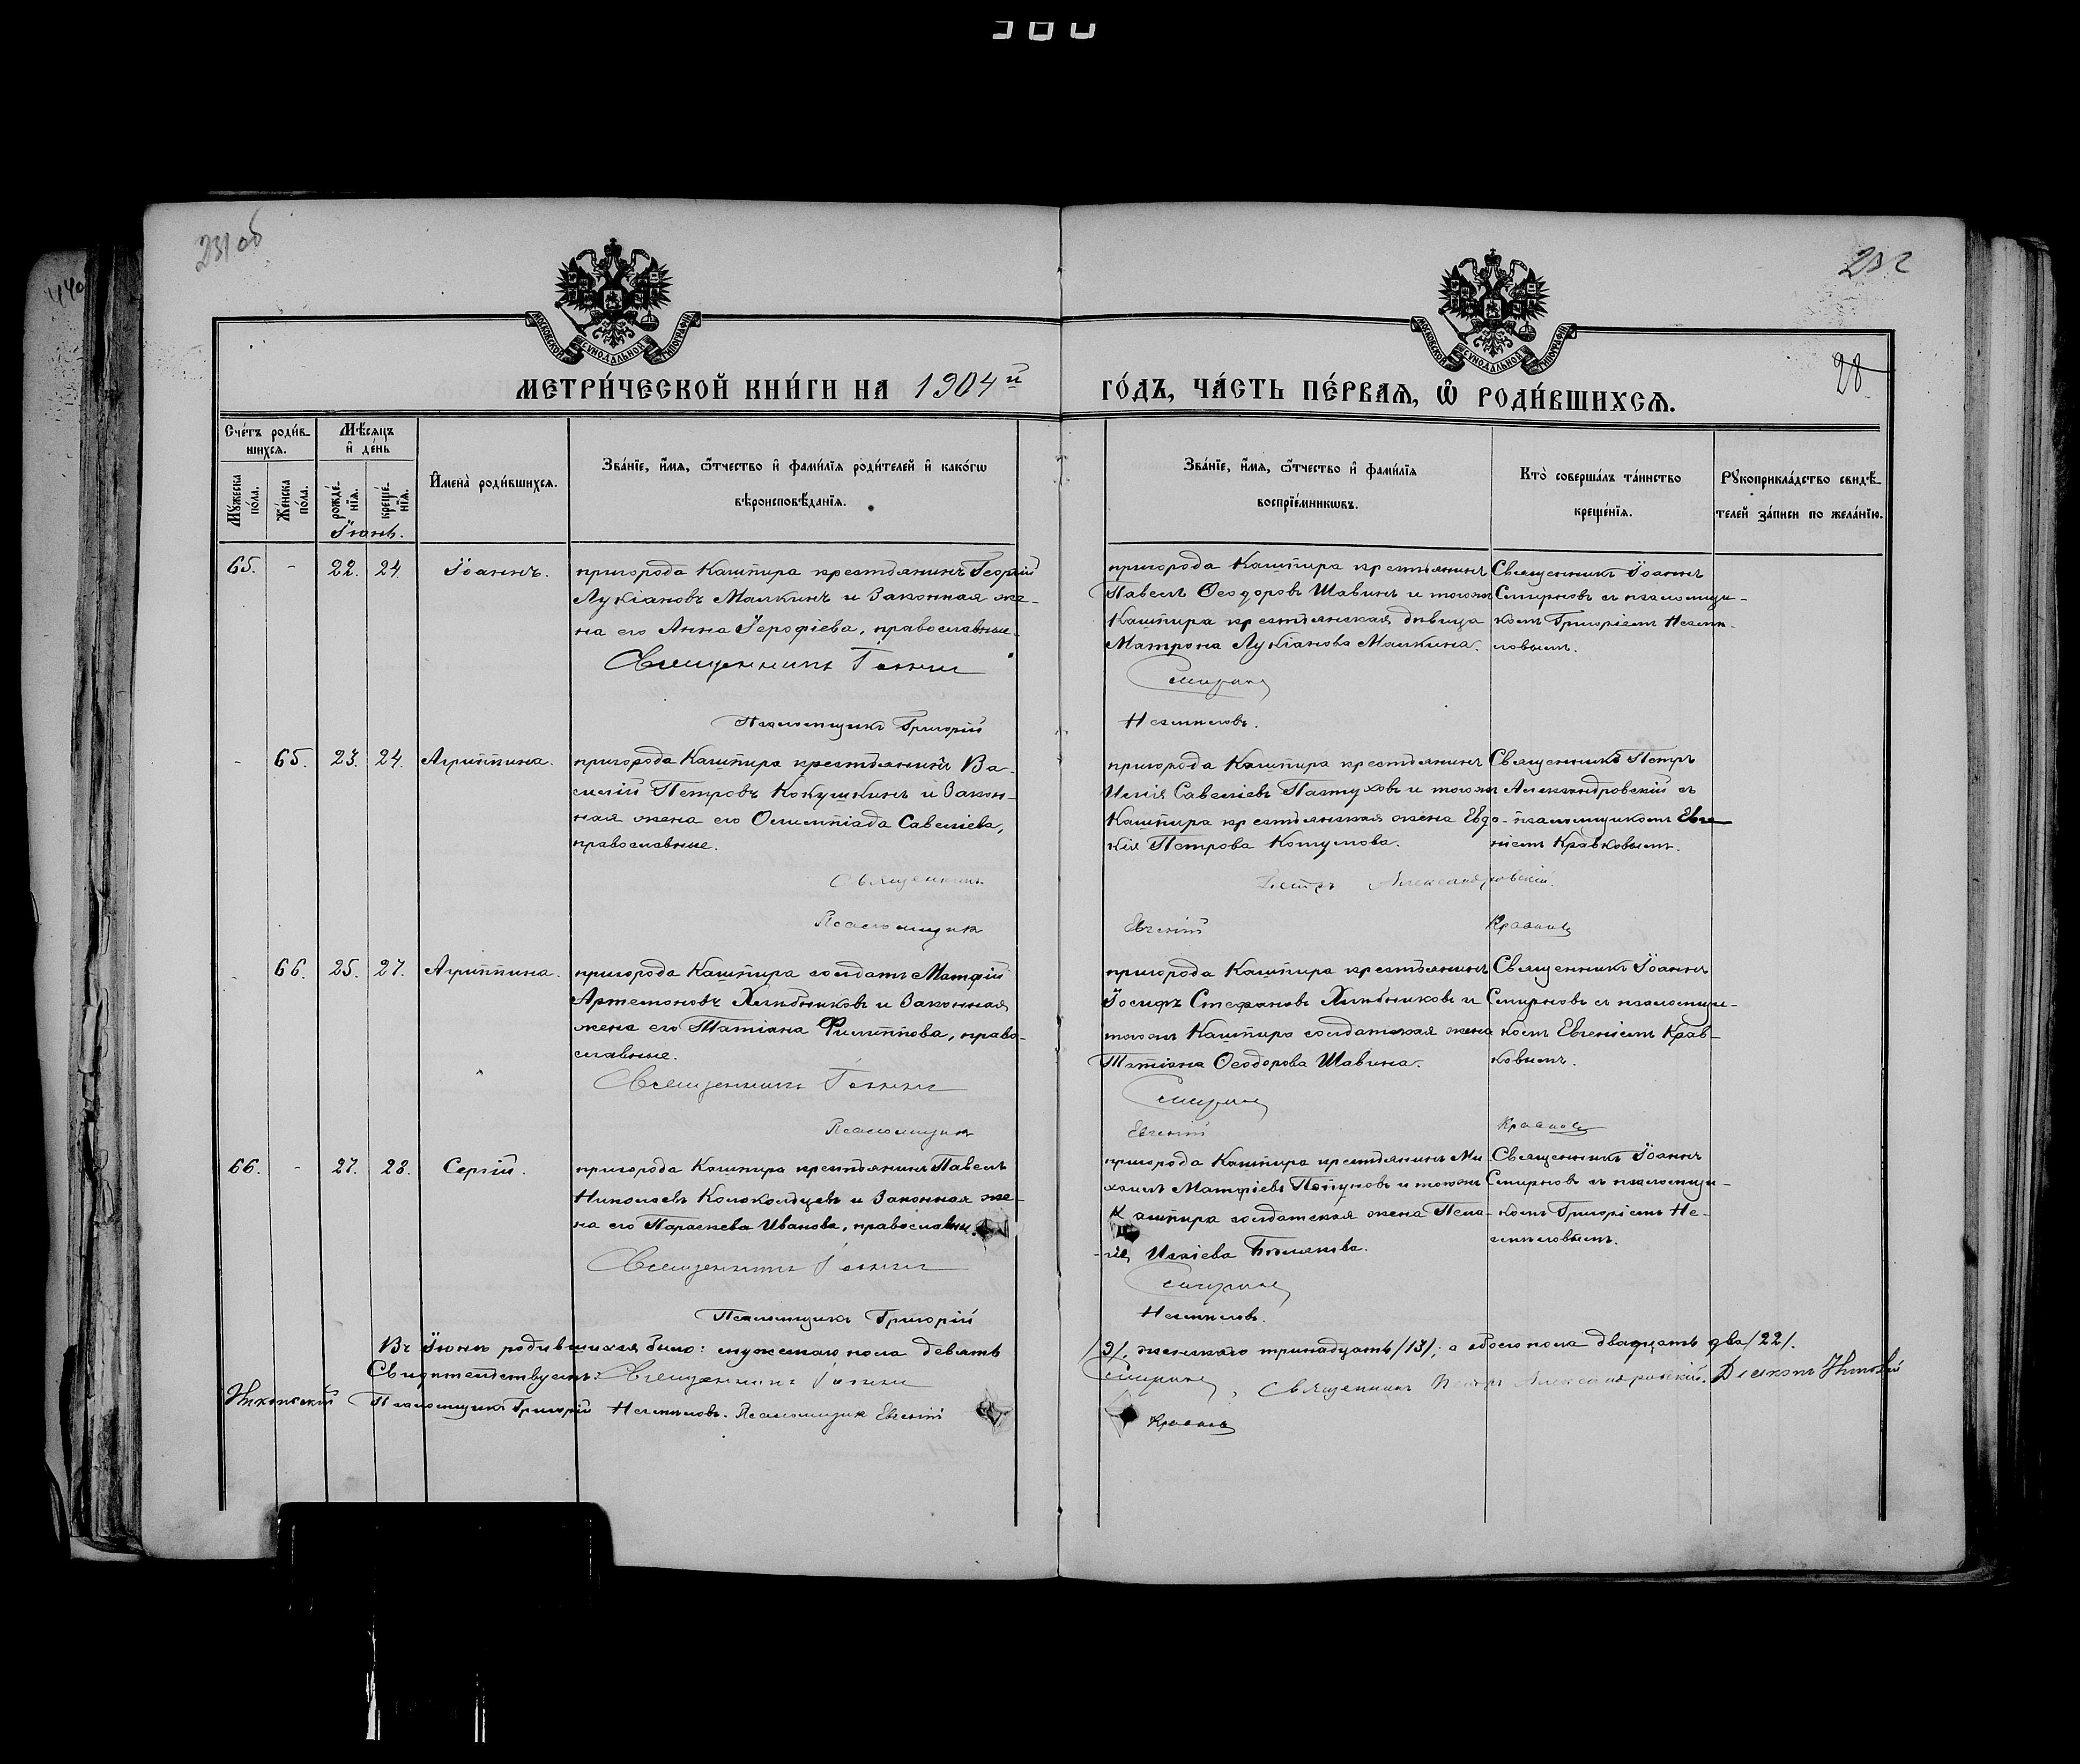 231 об
232
28
МОСКОВСКОЙ СУНОДАЛЬНОЙ ТИПОГРАФІИ
МОСКОВСКОЙ СУНОДАЛЬНОЙ ТИПОГРАФІИ
МЕТРИ́ЧЕСКОЙ КНИ́ГИ НА 1904 й ГО́ДЪ, ЧА́СТЬ ПЕ́РВАѦ, Ѡ҆ РОДИ́ВШИХСѦ.
Сче́тъ роди́в-
шихсѧ.
Мꙋ́жеска по́ла.
Же́нска по́ла.
Мѣ́сѧцъ
и҆ де́нь
рожде́-
нїѧ.
креще́-
нїѧ.
Іюнь.
И҆мена̀ роди́вшихсѧ.
Зва́нїе, и҆́мѧ, ѻ҆́тчество и҆ фами́лїѧ роди́телей и҆ како́гѡ
вѣроисповѣ́данїѧ.
Зва́нїе, и҆́мѧ, ѻ҆́тчество и҆ фами́лїѧ
воспрїе́мникѡвъ.
Кто̀ соверша́лъ та́инство
креще́нїѧ.
Рꙋкоприкла́дство свидѣ́-
телей за́писи по жела́нїю.
65. - 22. 24. Іоаннъ.
пригорода Кашпира крестьянинъ Георгій
Лукіановъ Малкинъ и законная же-
на его Анна Іерофіева, православные.
Священникъ Іоаннъ
Псаломщикъ Григорій
пригорода Кашпира крестьянинъ
Павелъ Ѳеодоровъ Шавинъ и тогожъ
Кашпира крестьянская дѣвица
Матрона Лукіанова Малкина.
Смирновъ
Несмѣловъ.
Священникъ Іоаннъ
Смирновъ съ псаломщи-
комъ Григоріемъ Несмѣ-
ловымъ.
- 65. 23. 24. Агриппина.
пригорода Кашпира крестьянинъ Ва-
силій Петровъ Кокушкинъ и закон-
ная жена его Олимпіада Савеліева,
православные.
Священникъ
Псаломщикъ
пригорода Кашпира крестьянинъ
Илія Савеліевъ Пастуховъ и тогожъ
Кашпира крестьянская жена Евдо-
кія Петрова Котумова.
Петръ Александровскій.
Евгеній Кравковъ
Священникъ Петръ
Александровскій съ
псаломщикомъ Евге-
ніемъ Кравковымъ.
- 66. 25. 27. Агриппина.
пригорода Кашпира солдатъ Матфій
Артемоновъ Хлѣбниковъ и законная
жена его Татіана Филиппова, право-
славные.
Священникъ Іоаннъ
Псаломщикъ
пригорода Кашпира крестьянинъ
Іосифъ Стефановъ Хлѣбниковъ и
тогожъ Кашпира солдатская жена
Татіана Ѳеодорова Шавина.
Смирновъ
Евгеній Кравковъ
Священникъ Іоаннъ
Смирновъ съ псаломщи-
комъ Евгеніемъ Крав-
ковымъ.
66. - 27. 28. Сергій.
пригорода Кашпира крестьянинъ Павелъ
Николаевъ Колокольцевъ и законная же-
на его Параскева Иванова, православн.
Священникъ Іоаннъ
Псаломщикъ Григорій
пригорода Кашпира крестьянинъ Ми-
хаилъ Матфіевъ и тогожъ
Кашпира солдатская жена Пела-
гія Иліева
Смирновъ
Несмѣловъ.
Священникъ Іоаннъ
Смирновъ съ псаломщи-
комъ Григоріемъ Не-
смѣловымъ.
Въ Іюнѣ родившихся было: мужескаго пола девять /9/, женскаго тринадцать /13/, а обоего пола двадцать два /22/.
Свидѣтельствуемъ: Священникъ Іоаннъ Смирновъ, Священникъ Петръ Александровскій. Діаконъ
Никольскій Псаломщикъ Григорій Несмѣловъ. Псаломщикъ Евгеній Кравковъ